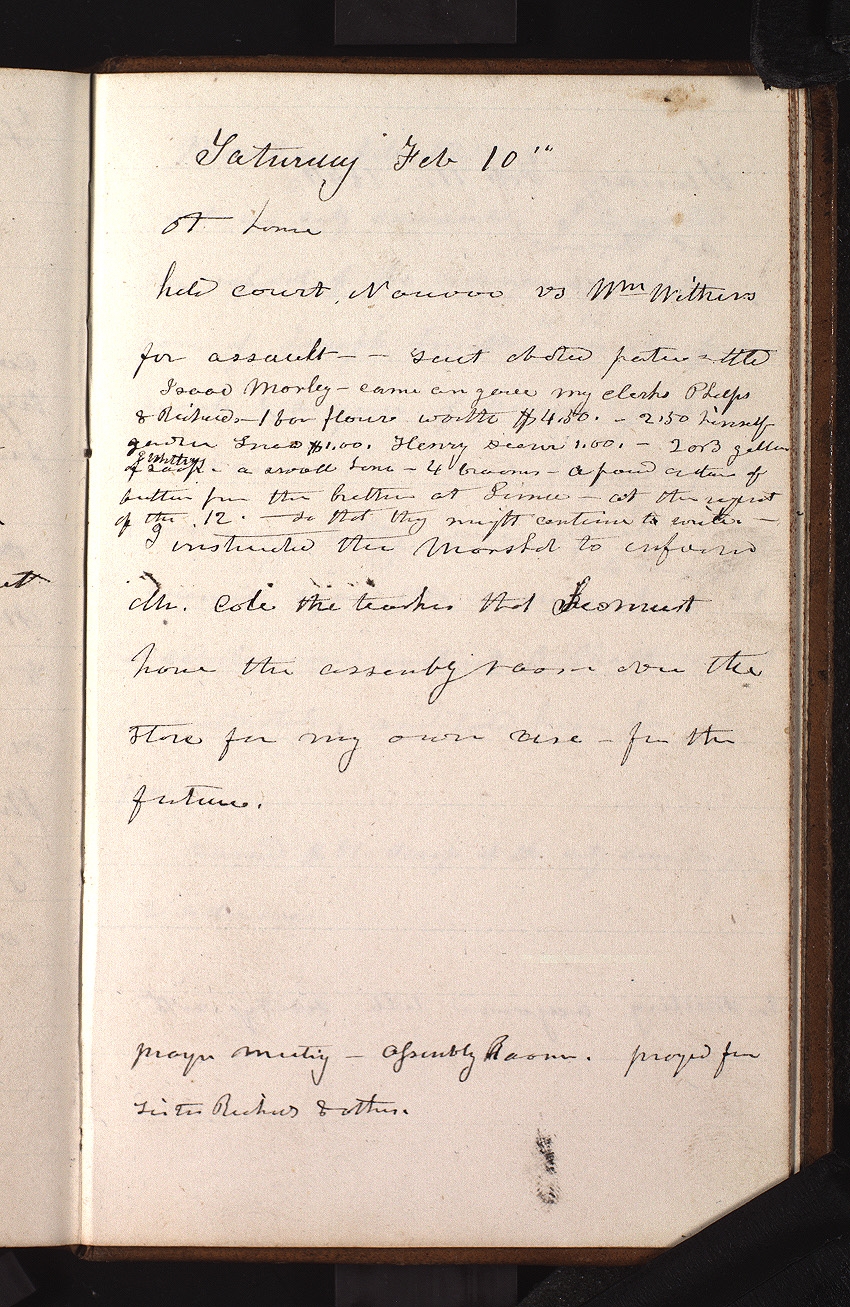 Saturday Feb 10"
At home
held court, Nauvoo vs Wm Withers
for assault — sent parties settle
Isaac Morley — came an gave my clerks Phelps
& Richards — 1 bar flour worth $4.50. — 2,50 himself
Snow $1.00. Henry 1.00. — 2 or 3 gallon
of soap — a small ham — 4 brooms — a pound of
butter from the brethren at Lima — at the request
of the .12. — so that they might continue to write. —
I instructed the Marshal to inform
Mr. Cole the teacher that I must
have the assembly room over the
store for my own use — for the
future.
prayer meeting — assembly Room. prayed for
sister Richards & others.